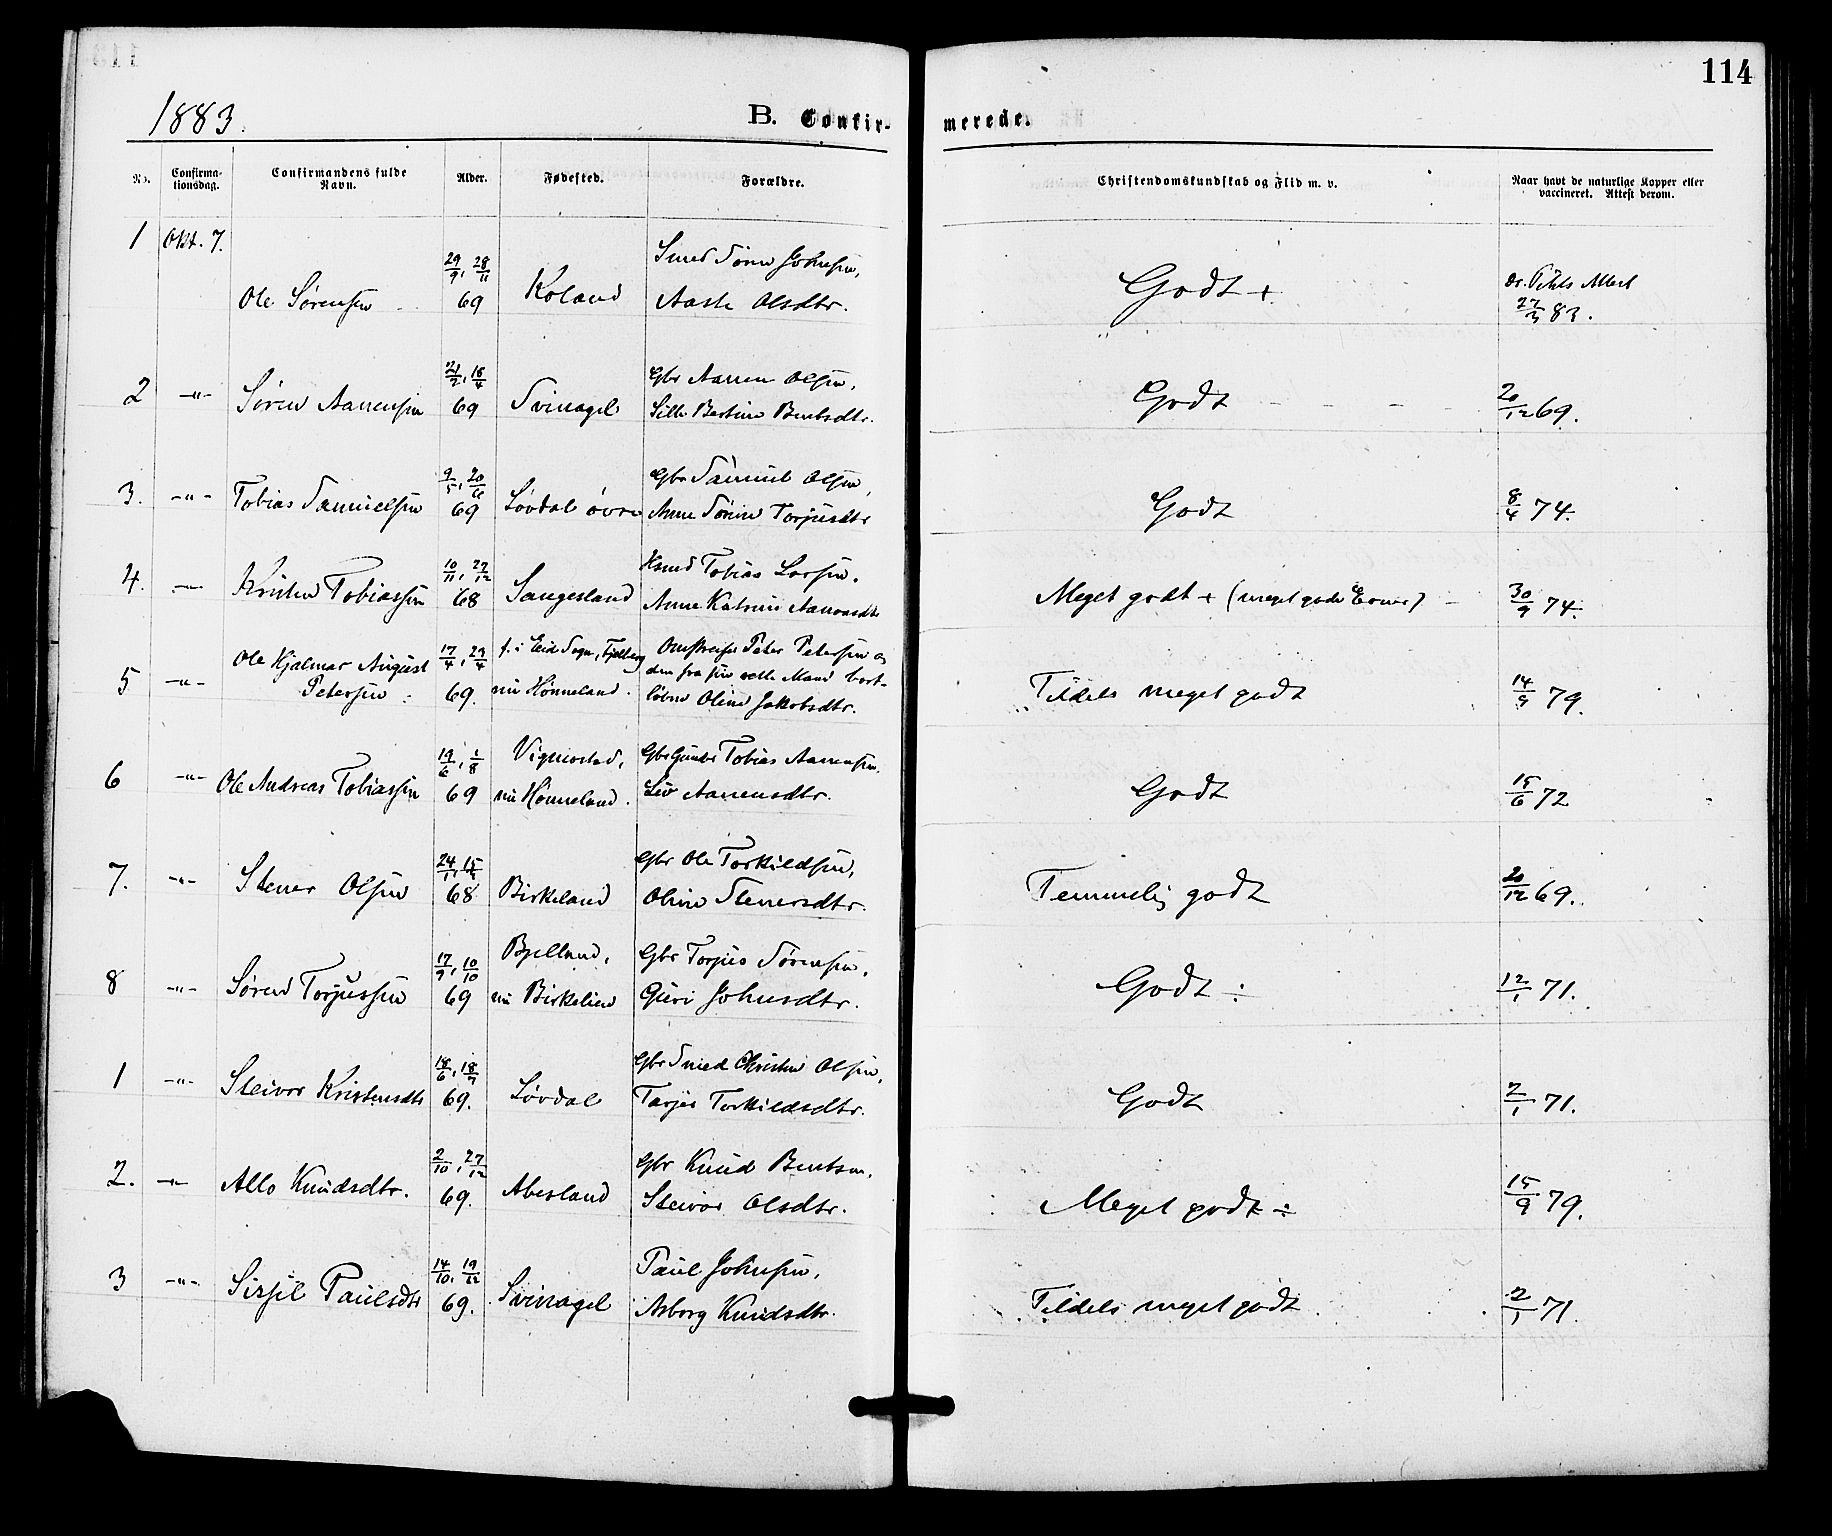 114
1883.
B. Confirmerede.
No. Confirmationsdag. Confirmandens fulde Navn. Alder. Fødested. Forældre. Christendomskundskab og Flid m. v. Naar havt de naturlige Kopper eller vaccineret. Attest derom.
1 Okt. 7.
Ole Sørensen 29/9, 28/11 69 Koland Smed Sören Johnsen, Aaste Olsdtr. Godt + dr. Attest 27/3 83.
2 -"- Søren Aanensen 21/2, 18/4 69 Svinagel Gbr Aanen Olsen, Sille Bertine Bentsdtr. Godt - - - - 20/12 69.
3. -"- Tobias Samuelsen 9/5, 20/6 69 Løvdal øvre Gbr Samuel Olsen, Anne Sörine Torjusdtr Godt 8/4 74.
4. -"- Kristen Tobiassen 10/11, 27/12 68 Saugesland Hsmd Tobias Larsen. Anne Katrine Aanonsdtr Meget godt + (meget gode Evner) - 30/9 74.
5 -"- Ole Hjalmar August Petersen 17/4, 29/4 69. f. i Eid Sogn, Fjelberg nu Hønneland. Omstreifer Peter Petersen og den fra sin rette Mand bortløbne Oline Jakobsdtr. Tildels meget godt 14/9 79.
6 -"- Ole Andreas Tobiassen 19/6, 1/8 69 Vigmostad, nu Hønneland. Gbr Tobias Aanensen. Liv Aanensdtr. Godt 15/6 72
7. -"- Stener Olsen 24/1, 15/3 68 Birkeland Gbr Ole Torkildsen, Oline Stenersdtr. Temmelig godt 20/12 69.
8 -"- Søren Torjussen 17/9, 10/10 69 Bjelland, nu Birkelien Gbr Torjus Sørensen, Guri Johnsdtr. Godt ÷ 12/1 71.
1 -"- Steivor Kristensdtr 18/6, 18/7 69. Løvdal Gbr Smed Christen Olsen, Tarjer Torkildsdtr. Godt 2/1 71.
2. -"- Allo Knudsdtr. 2/10, 27/12 69. Abesland Gbr Knud Bentsen. Steivor Olsdtr. Meget godt ÷ 15/9 79.
3 -"- Sissil Paulsdtr 14/10, 19/12 69. Svinagel Paul Johnsen, Asborg Knudsdtr. Tildels meget godt 2/1 71.